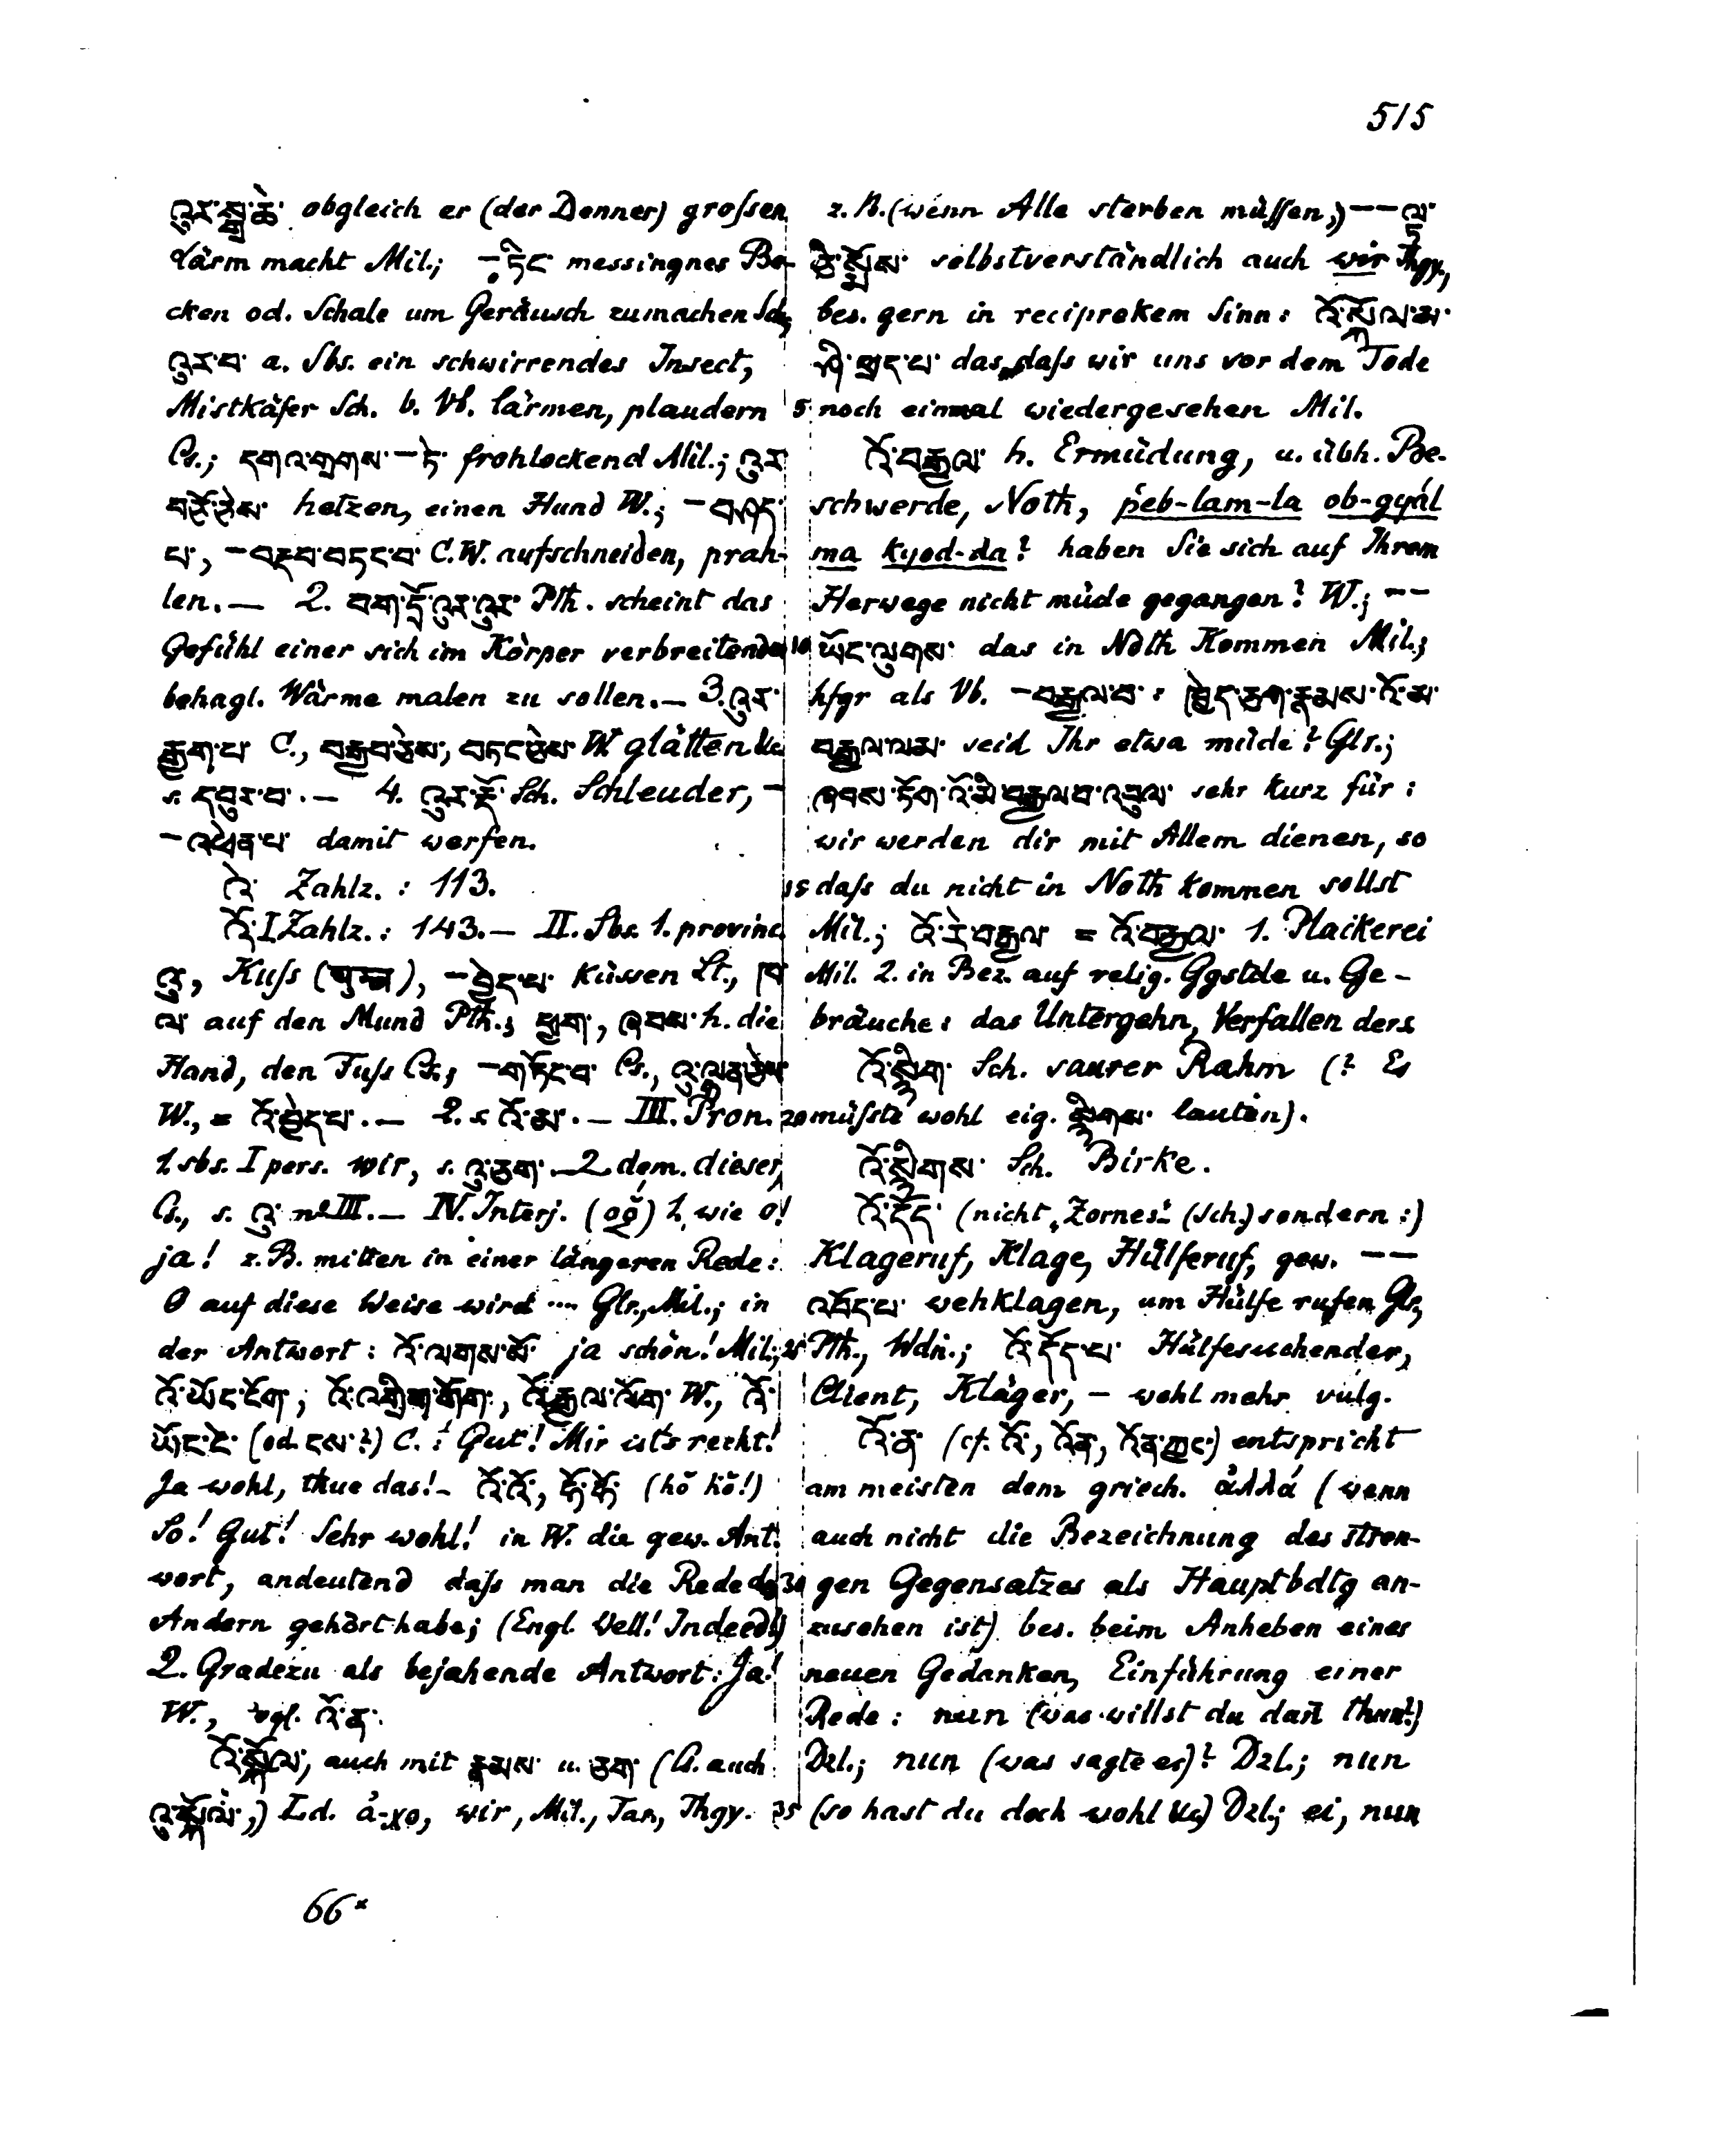 515
འུར་སྒྲ་ཆེ་ obgleich er (der Donner) grossen
Lärm macht Mil.; – ཏིང་ messingnes Be-
cken od. Schale um Geräusch zu machen Sch.;
འུར་བ་ a. Sbs. ein schwirrendes Insect,
Mistkäfer Sch. b. Vb. lärmen, plaudern
Cs.; དགའ་གྲགས་ – ཏེ་ frohlockend Mil.; འུར
བཅོ་ཅེས་ hetzen, einen Hund W.; – བཤད་
པ་, – བརྡབ་བཏང་བ་ C.W. aufschneiden, prah-
len. — 2. བག་དྲོ་འུར་འུར་ Pth. scheint das
Gefühl einer sich im Körper verbreitenden
behagl. Wärme malen zu sollen. — 3. འུར་
རྒྱག་པ་ C., བརྒྱབ་ཅེས་, བཏང་ཅེས་ W. glätten &c
s. དབུར་བ་. — 4. འུར་རྡོ་ Sch. Schleuder, –
– འཕེན་པ་ damit werfen.
འེ་ Zahlz.: 113.
འོ་ I Zahlz.: 143. — II. Sbs. 1. provinc.
འུ་, Kuss (चुम्ब), – བྱེད་པ་ küssen Lt., ཁ
ལ་ auf den Mund Pth.; ཕྱག་, ཞབས་ h. die
Hand, den Fuss Cs.; – གཏོང་བ་ Cs., འུ་ལྷན་ཅེས་
W., = འོ་བྱེད་པ་. — 2. s. འོ་མ་. — III. Pron.
1. sbs. I pers. wir, s. འུ་ཅག་. — 2. dem. dieser,
Cs., s. འུ་ no III. — IV. Interj. 1. wie o!
ja! z. B. mitten in einer längeren Rede:
O auf diese Weise wird .... Glr., Mil.; in
der Antwort: འོ་ལགས་སོ་ ja schön! Mil.;
འོ་ཡོང་ངོག་, འོ་འགྲིག་གོག་, འོ་རྒྱལ་ལོག་ W., འོ་
ཡོང་ངེ་ (od. ངས་?) C.: Gut! Mir ist's recht!
Ja wohl, thue das! – འོ་འོ་, ཧོ་ཧོ་ (hŏ hŏ!)
So! Gut! Sehr wohl! in W. die gew. Ant-
wort, andeutend dass man die Rede des
Andern gehört habe; (Engl. Well! Indeed!)
2. Gradezu als bejahende Antwort: Ja!
W., vgl. འོ་ན་.
འོ་སྐོལ་, auch mit རྣམས་ u. ཅག་ (Cs. auch
འུ་སྐོལ་,) Ld. ả-χo, wir, Mil., Tar., Thgy.
z. B. (wenn Alle sterben müssen,) –– ལྟ་
ཅི་སྨོས་ selbstverständlich auch wir Thgy.,
bes. gern in reciprokem Sinn: འོ་སྐོལ་མ་
ཤི་ཕྲད་པ་ das, dass wir uns vor dem Tode
5 noch einmal wiedergesehen Mil.
འོ་བརྒྱལ་ h. Ermüdung, u. übh. Be-
schwerde, Noth, ṕeb-lam-la ob-gyál
ma kyod-da? haben Sie sich auf Ihrem
Herwege nicht müde gegangen? W.; ––
10 ཡོང་ལུགས་ das in Noth Kommen Mil.;
hfgr als Vb. – བརྒྱལ་བ་: ཁྱེད་རྒྱག་རྣམས་འོ་མ་
བརྒྱལ་ལམ་ seid Ihr etwa müde? Glr.;
ཞབས་ཏོག་འོ་མི་བརྒྱལ་བ་འབུལ་ sehr kurz für:
wir werden dir mit Allem dienen, so
15 dass du nicht in Noth kommen sollst
Mil.; འོ་རེ་བརྒྱལ་ = འོ་བརྒྱལ་ 1. Plackerei
Mil. 2. in Bez. auf relig. Ggstde u. Ge-
bräuche: das Untergehn, Verfallen ders.
འོ་སྲིག་ Sch. saurer Rahm (? Es
20 müsste wohl eig. སྲིགས་ lauten).
འོ་སྲིགས་ Sch. Birke.
འོ་དོད་ (nicht „Zornes“ (Sch.) sondern:)
Klageruf, Klage, Hülferuf, gew. ––
འབོད་པ་ wehklagen, um Hülfe rufen Glr.,
25 Pth., Wdn.; འོ་དོད་པ་ Hülfesuchender,
Client, Kläger, – wohl mehr vulg.
འོ་ན་ (cf. འོ་, འོན་, འོན་ཀྱང་) entspricht
am meisten dem griech. ἀλλά (wenn
auch nicht die Bezeichnung des stren-
30 gen Gegensatzes als Hauptbdtg an-
zusehen ist) bes. beim Anheben eines
neuen Gedanken, Einführung einer
Rede: nun (was willst du dañ thun?)
Dzl.; nun (was sagte er)? Dzl.; nun
35 (so hast du doch wohl &c) Dzl.; ei, nun
66*